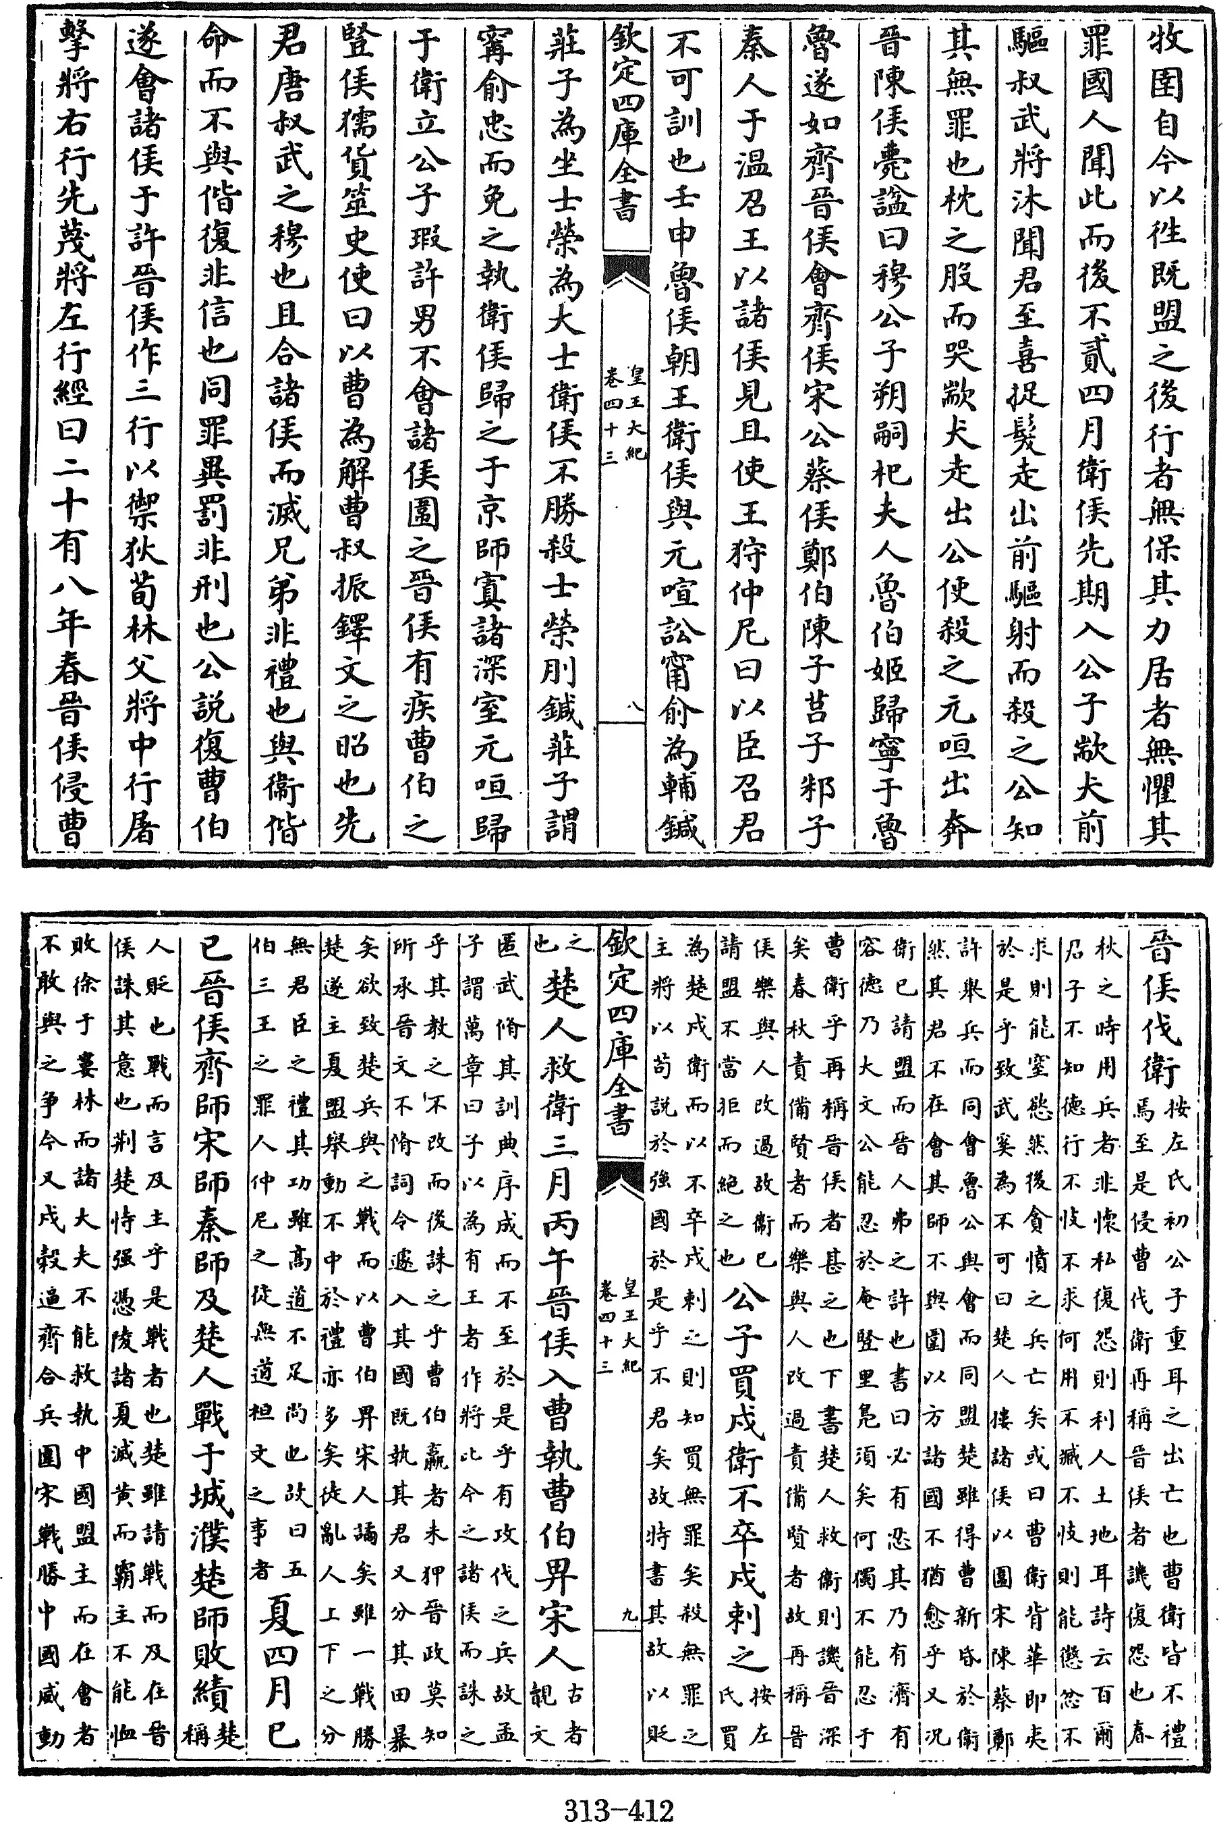 牧圉自今以徃既盟之後行者無保其力居者無懼其
罪國人聞此而後不貳四月衛侯先期入公子歂犬前
驅叔武將沐聞君至喜捉髮走出前驅射而殺之公知
其無罪也枕之股而哭歂犬走出公使殺之元咺出奔
晉陳侯薨諡曰穆公子朔嗣杞夫人魯伯姬歸寧于魯
魯遂如齊晉侯會齊侯宋公蔡侯鄭伯陳子莒子邾子
秦人于温召王以諸侯見且使王狩仲尼曰以臣召君
不可訓也壬申魯侯朝王衛侯與元喧訟甯俞為輔鍼
欽定四庫全書
皇王大紀
卷四十三
八
莊子為坐士榮為大士衛侯不勝殺士榮刖鍼莊子謂
甯俞忠而免之執衛侯歸之于京師寘諸深室元咺歸
于衛立公子瑕許男不會諸侯圍之晉侯有疾曹伯之
豎侯獳貨筮史使曰以曹為解曹叔振鐸文之昭也先
君唐叔武之穆也且合諸侯而滅兄弟非禮也與衛偕
命而不與偕復非信也同罪異罰非刑也公説復曹伯
遂會諸侯于許晉侯作三行以禦狄荀林父將中行屠
擊將右行先蔑將左行經曰二十有八年春晉侯侵曹
晉侯伐衛
按左氏初公子重耳之出亡也曹衛皆不禮
焉至是侵曹伐衛再稱晉侯者譏復怨也春
秋之時用兵者非懷私復怨則利人土地耳詩云百爾
君子不知德行不忮不求何用不臧不忮則能懲忿不
求則能窒慾然後貪憤之兵亡矣或曰曹衛背華即夷
於是乎致武奚為不可曰楚人摟諸侯以圍宋陳蔡鄭
許舉兵而同會魯公與會而同盟楚雖得曹新昏於衛
然其君不在會其師不與圍以方諸國不猶愈乎又況
衛已請盟而晉人弗之許也書曰必有忍其乃有濟有
容德乃大文公能忍於奄豎里鳧須矣何獨不能忍于
曹衛乎再稱晉侯者甚之也下書楚人救衛則譏晉深
矣春秋責備賢者而樂與人改過責備賢者故再稱晉
侯樂與人改過故衛已
請盟不當拒而絕之也
公子買戍衛不卒戍刺之
按左
氏買
為楚戍衛而以不卒戍刺之則知買無罪矣殺無罪之
主將以苟説於強國於是乎不君矣故特書其故以貶
欽定四庫全書
皇王大紀
卷四十三
九
之
也
楚人救衛三月丙午晉侯入曹執曹伯畀宋人
古者
覿文
匿武脩其訓典序成而不至於是乎有攻伐之兵故孟
子謂萬章曰子以為有王者作將比今之諸侯而誅之
乎其教之不改而後誅之乎曹伯羸者未狎晉政莫知
所承晉文不脩詞令遽入其國既執其君又分其田暴
矣欲致楚兵與之戰而以曹伯畀宋人譎矣雖一戰勝
楚遂主夏盟舉動不中於禮亦多矣徒亂人上下之分
無君臣之禮其功雖高道不足尚也故曰五
伯三王之罪人仲尼之徒無道桓文之事者
夏四月己
巳晉侯齊師宋師秦師及楚人戰于城濮楚師敗績
楚
稱
人貶也戰而言及主乎是戰者也楚雖請戰而及在晉
侯誅其意也荆楚恃强憑陵諸夏滅黄而霸主不能恤
敗徐于婁林而諸大夫不能救執中國盟主而在會者
不敢與之争今又戍榖逼齊合兵圍宋戰勝中國威動
313-412